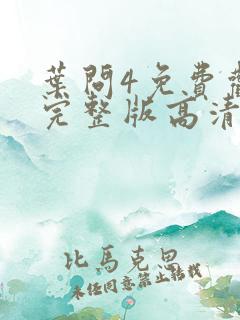 葉問4免費觀
完整版高清
比馬克思
未經同意禁止轉載